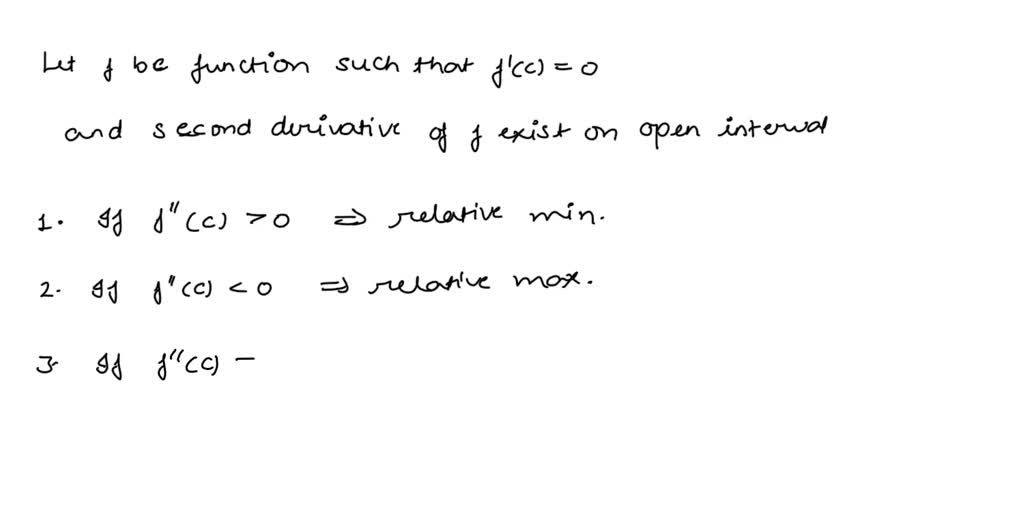 Let f be function such that f'(c) = 0
and second derivative of f exist on open interval
1. If f''(c) > 0 ⇒ relative min.
2. If f''(c) < 0 ⇒ relative max.
3. If f''(c) –